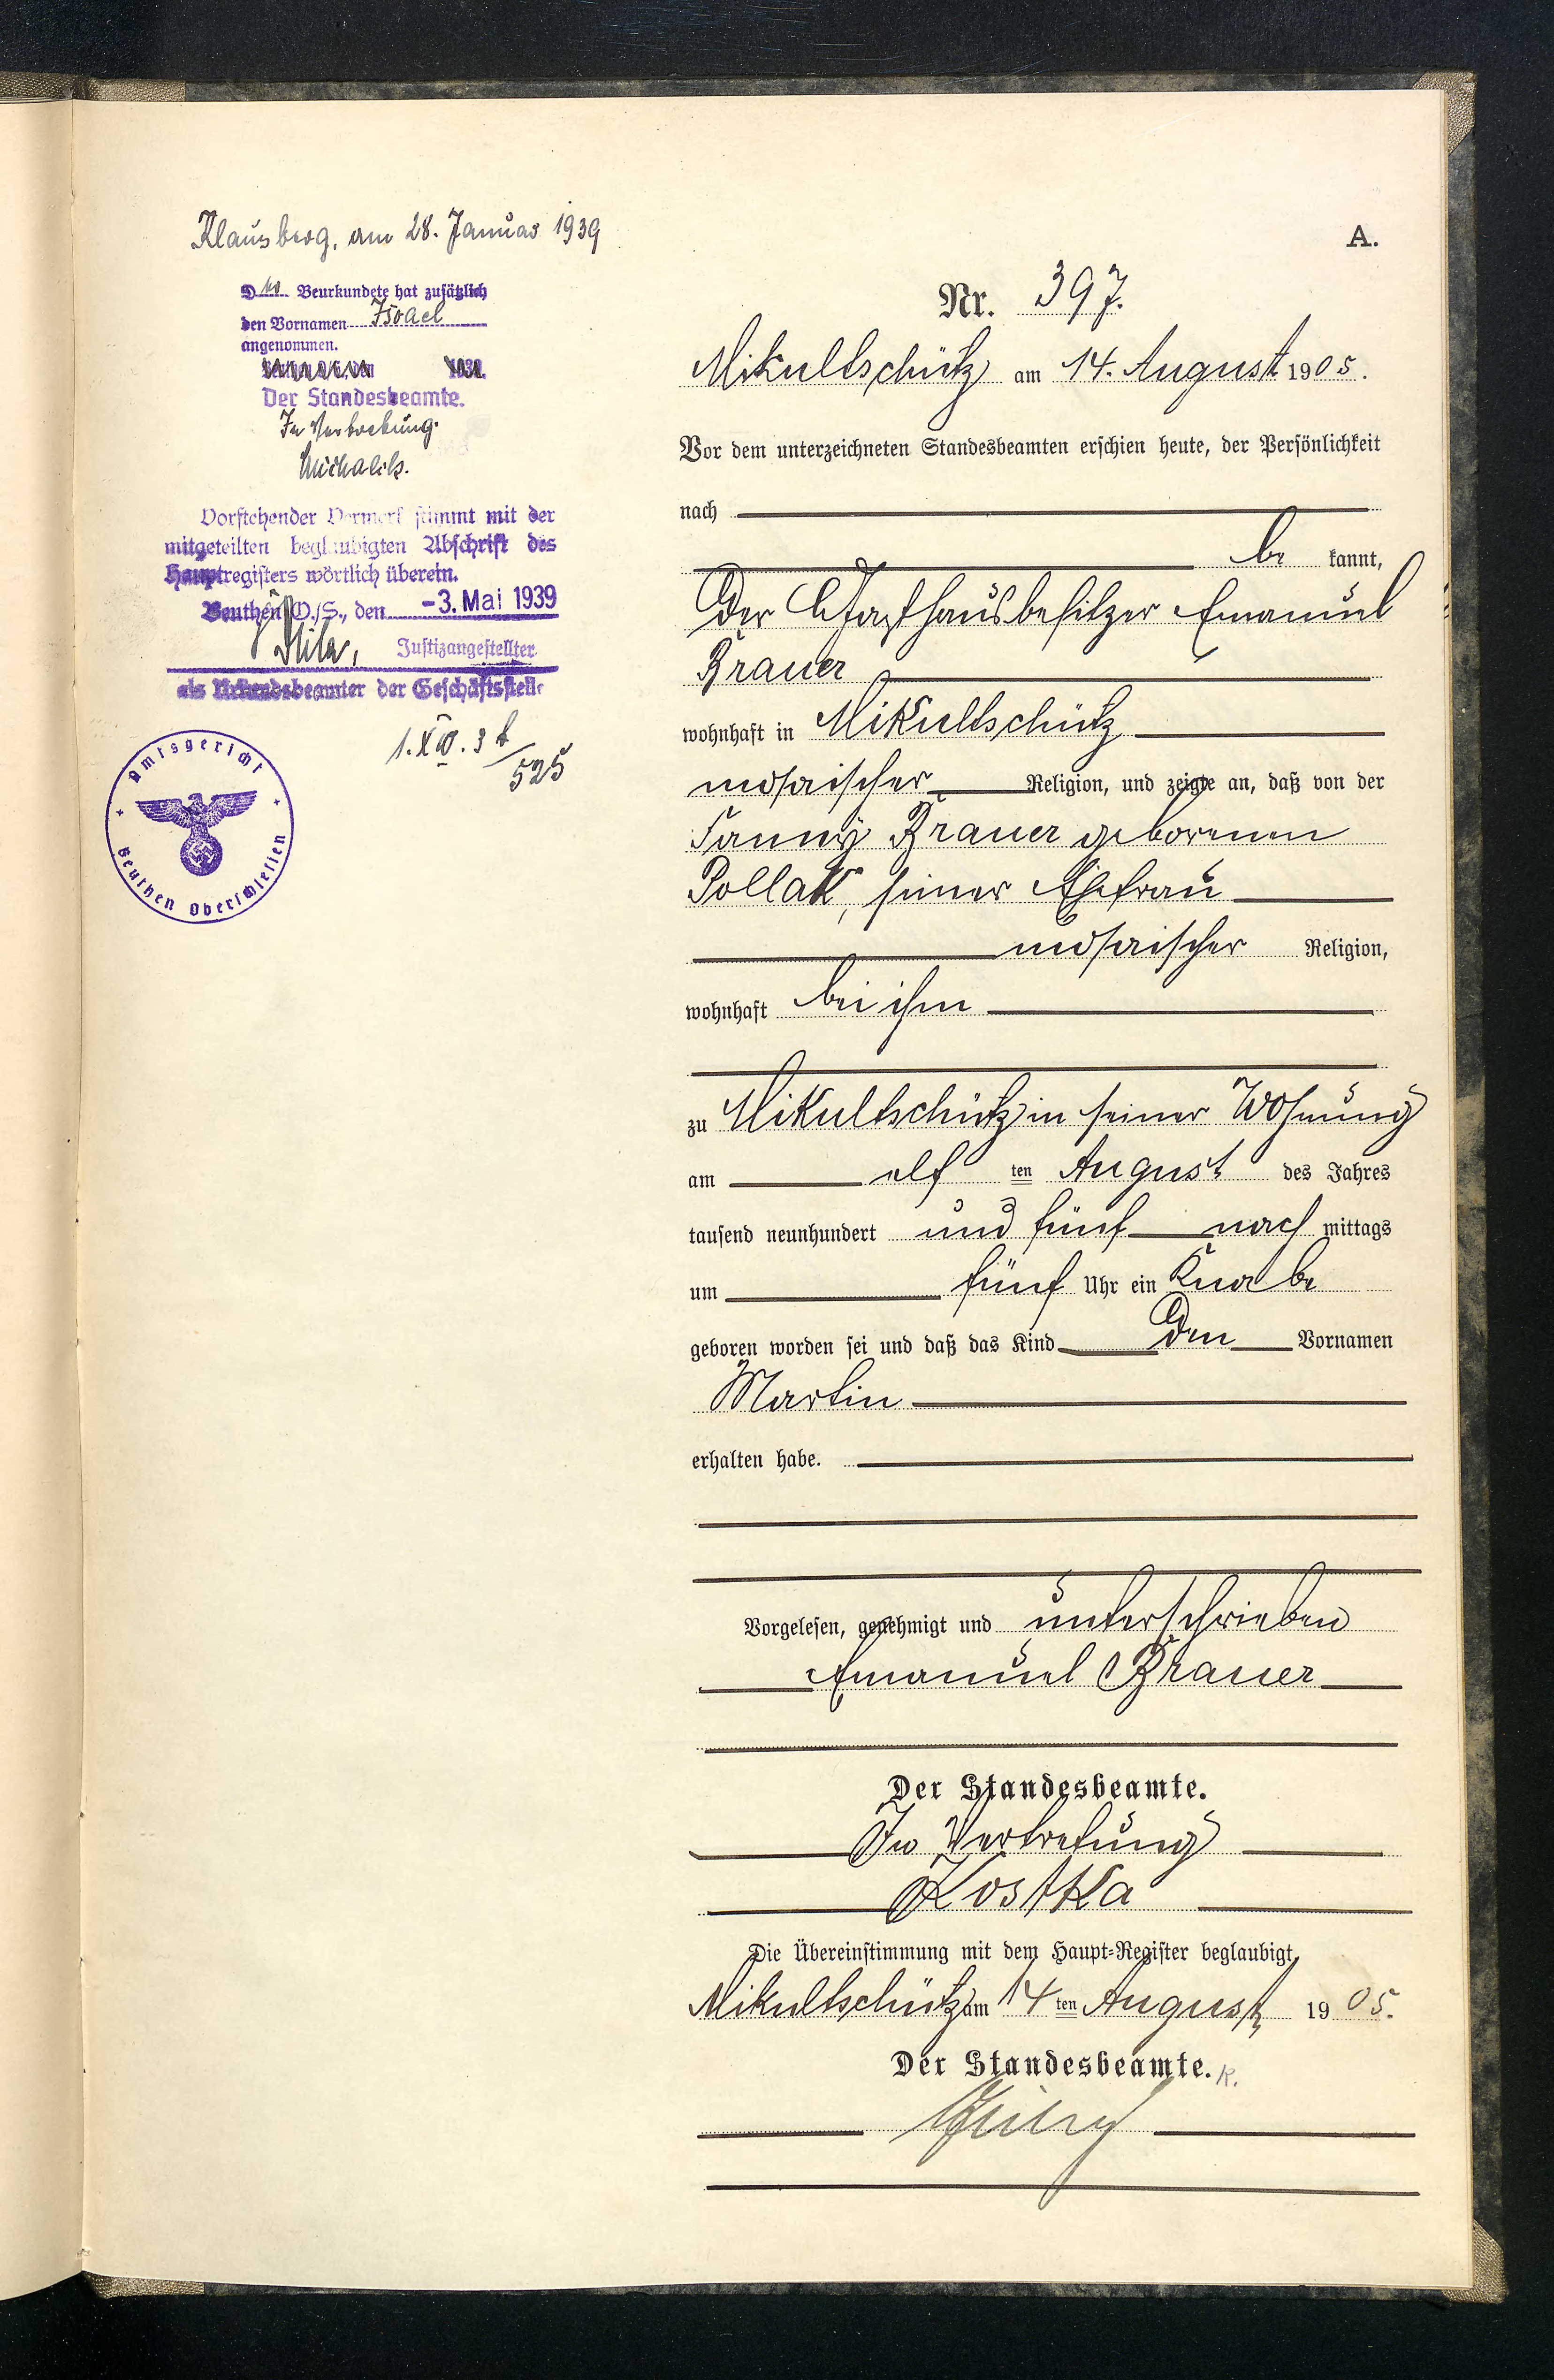 Klausberg, am 28. Januar 1939
Der Beurkundete hat zusätzlich
den Vornamen Israel
angenommen.
1939.
Der Standesbeamte.
In Vertretung.
Michalik.
Vorstehender Vermerk stimmt mit der
mitgeteilten beglaubigten Abschrift des
Hauptregisters wörtlich überein.
Beuthen O./S., den -3. Mai 1939
Justizangestellter
als Urkundsbeamter der Geschäftsstelle
525
Amtsgericht
Beuthen Oberschlesien
A.
Nr. 397.
Mikultschütz am 14. August 1905.
Vor dem unterzeichneten Standesbeamten erschien heute, der Persönlichkeit
nach
be kannt,
der Gasthausbesitzer Emanuel
Brauer
wohnhaft in Mikultschütz
mosaischer Religion, und zeigte an, daß von der
Fanny Brauer geborenen
Pollak, seiner Ehefrau
mosaischer Religion,
wohnhaft bei ihm
zu Mikultschütz in seiner Wohnung
am elf ten August des Jahres
tausend neunhundert und fünf nach mittags
um fünf Uhr ein Knabe
geboren worden sei und daß das Kind den Vornamen
Martin
erhalten habe.
Vorgelesen, genehmigt und unterschrieben
Emanuel Brauer
Der Standesbeamte.
In Vertretung
Kostka
Die Übereinstimmung mit dem Haupt-Register beglaubigt
Mikultschütz am 14 ten August 1905.
Der Standesbeamte.